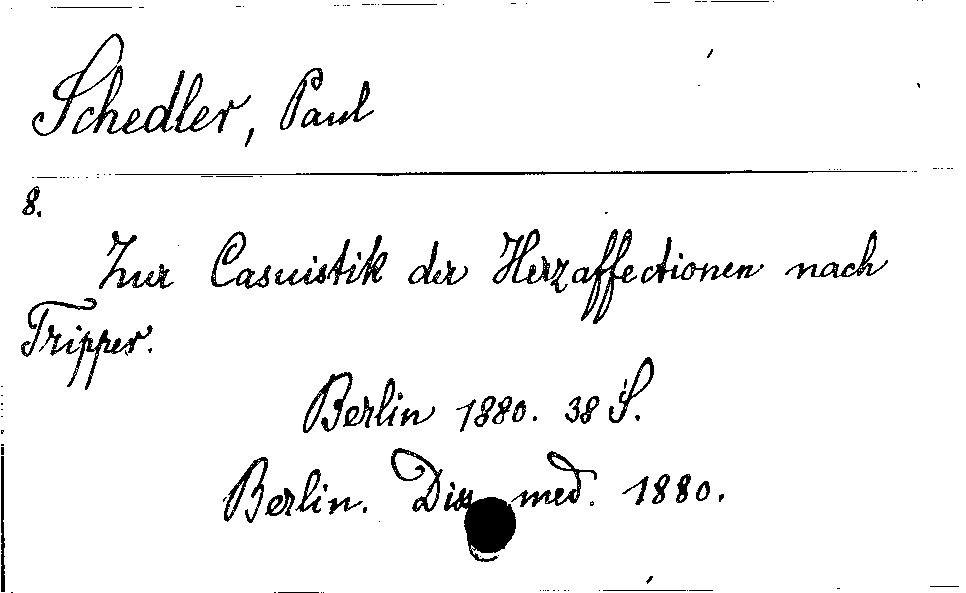 Schedler, Paul
8.
Zur Casuistik der Herzaffectionen nach
Tripper.
Berlin 1880. 38 S.
Berlin. Diss med. 1880.